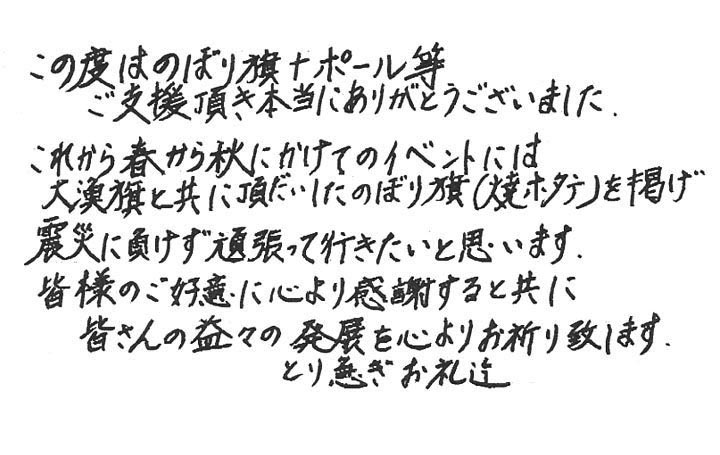 この度はのぼり旗+ポール等
ご支援頂き本当にありがとうございました.
これから春から秋にかけてのイベントには
大漁旗と共に頂だいしたのぼり旗(焼ホタテ)を掲げ
震災に負けず頑張って行きたいと思います.
皆様のご好意に心より感謝すると共に
皆さんの益々の発展を心よりお祈り致します.
とり急ぎお礼迄